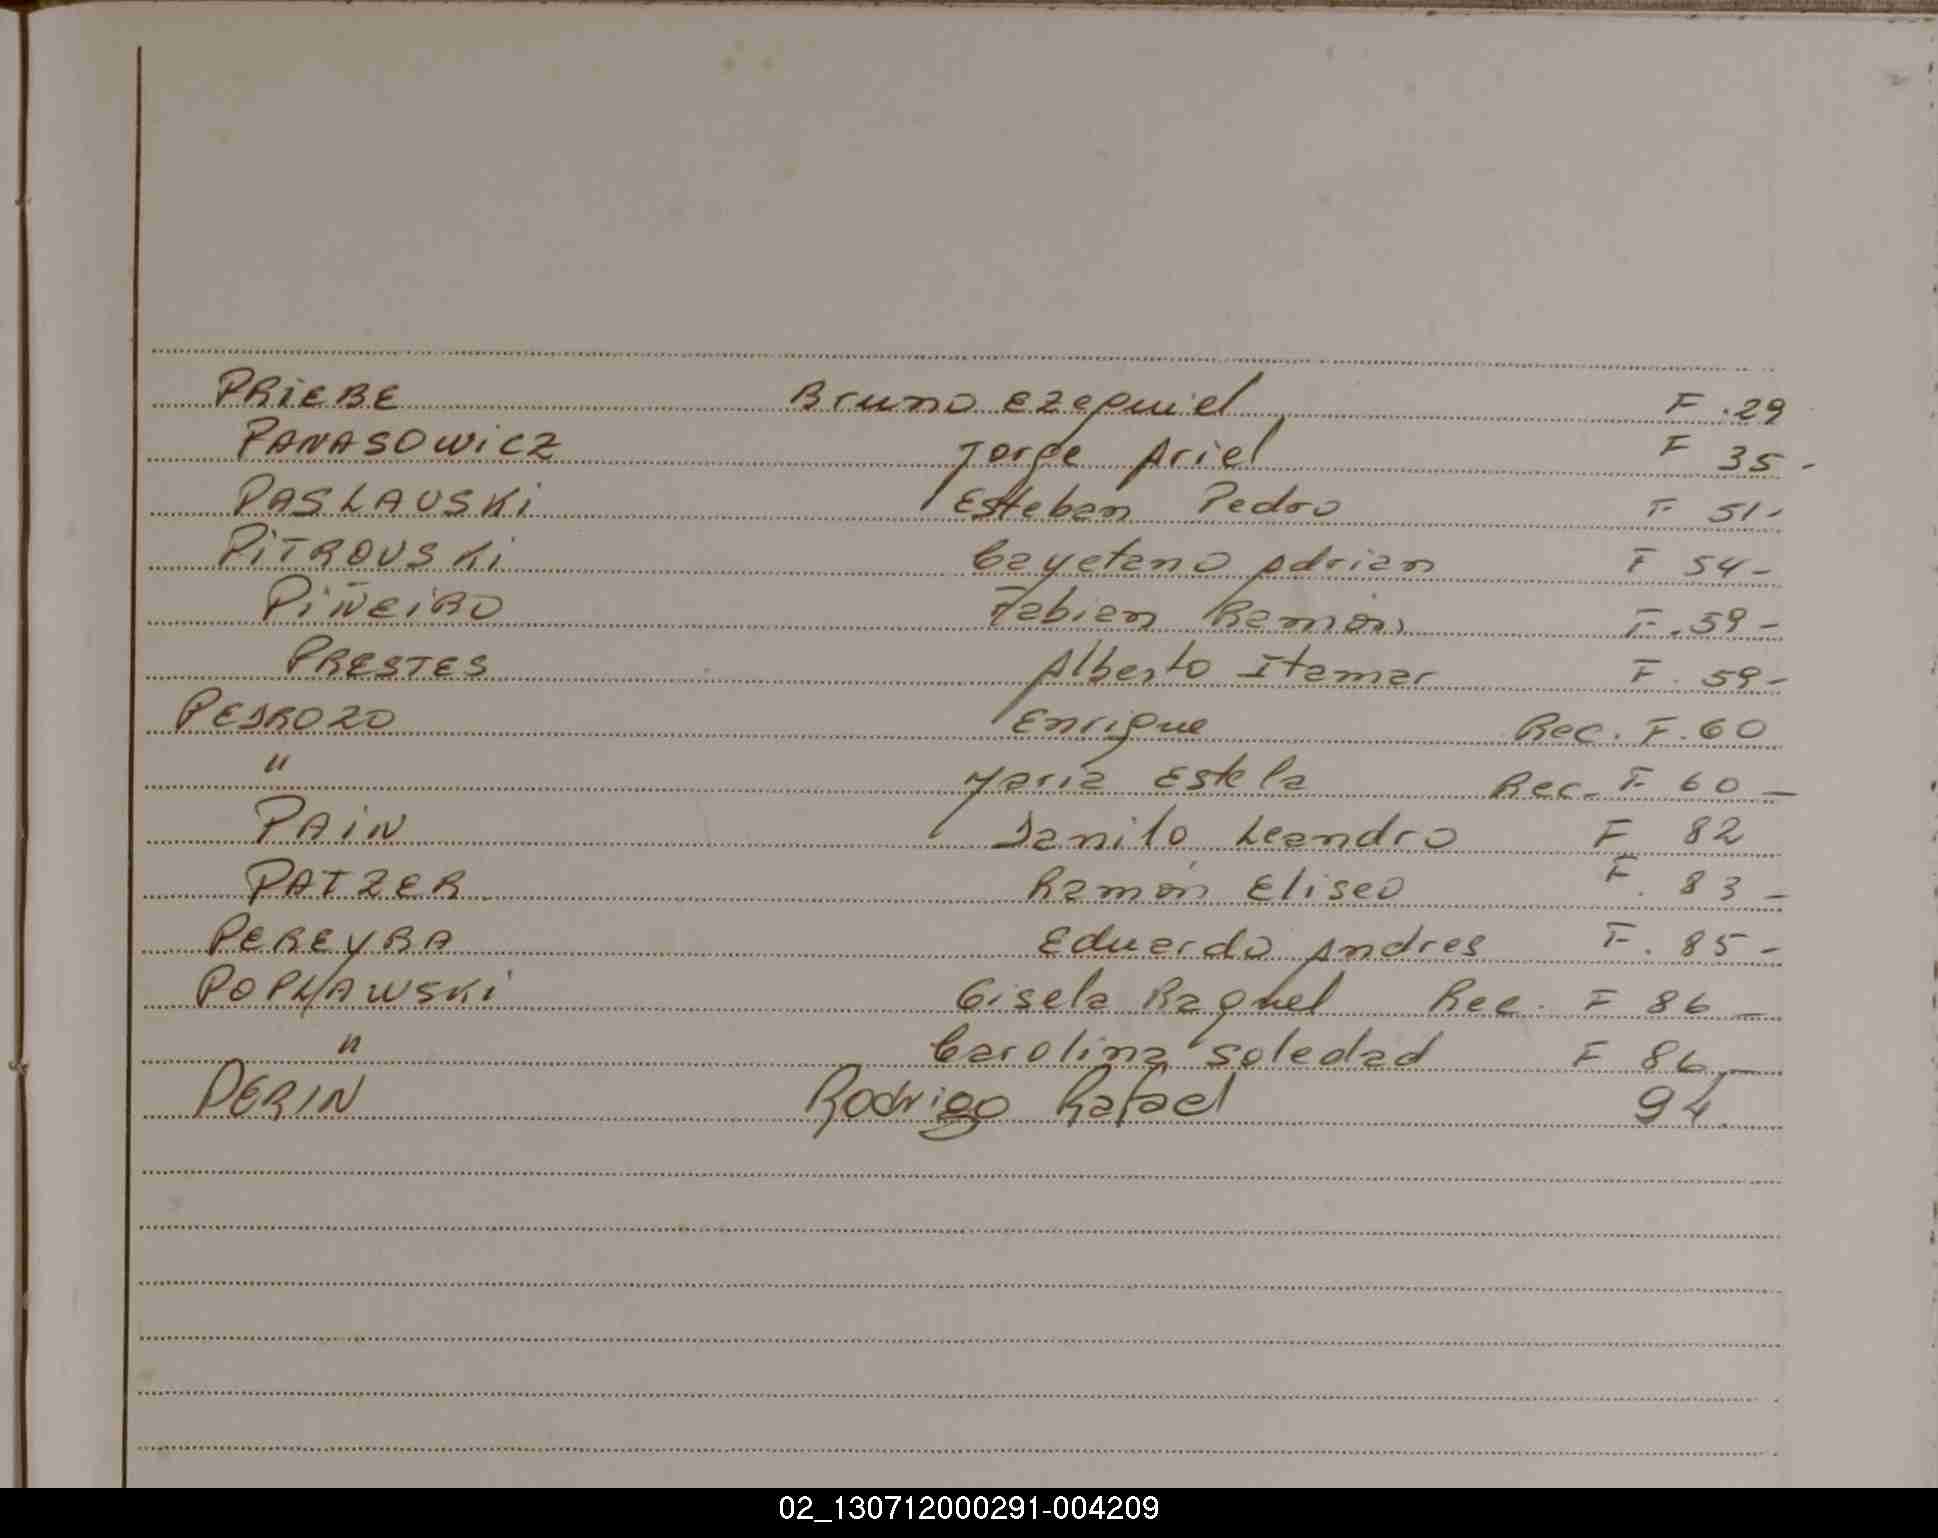 PRIEBE Bruno Ezequiel F. 29
PANASOWICZ Jorge Ariel F 35-
PASLAUSKI Esteban Pedro F 51-
PITROUSKI Cayetano Adrian F 54-
PIÑEIRO Fabian Ramón F. 59-
PRESTES Alberto Itamar F. 59-
PEDROZO Enrique Rec. F. 60
" Maria Estela Rec. F 60-
PAIN Danilo Leandro F 82
PATZER Ramón Eliseo F. 83-
PEREYRA Eduardo Andres F. 85-
POPLAWSKI Gisela Raquel Rec. F 86-
" Carolina Soledad F 86-
PERIN Rodrigo Rafael 94.
02_130712000291-004209